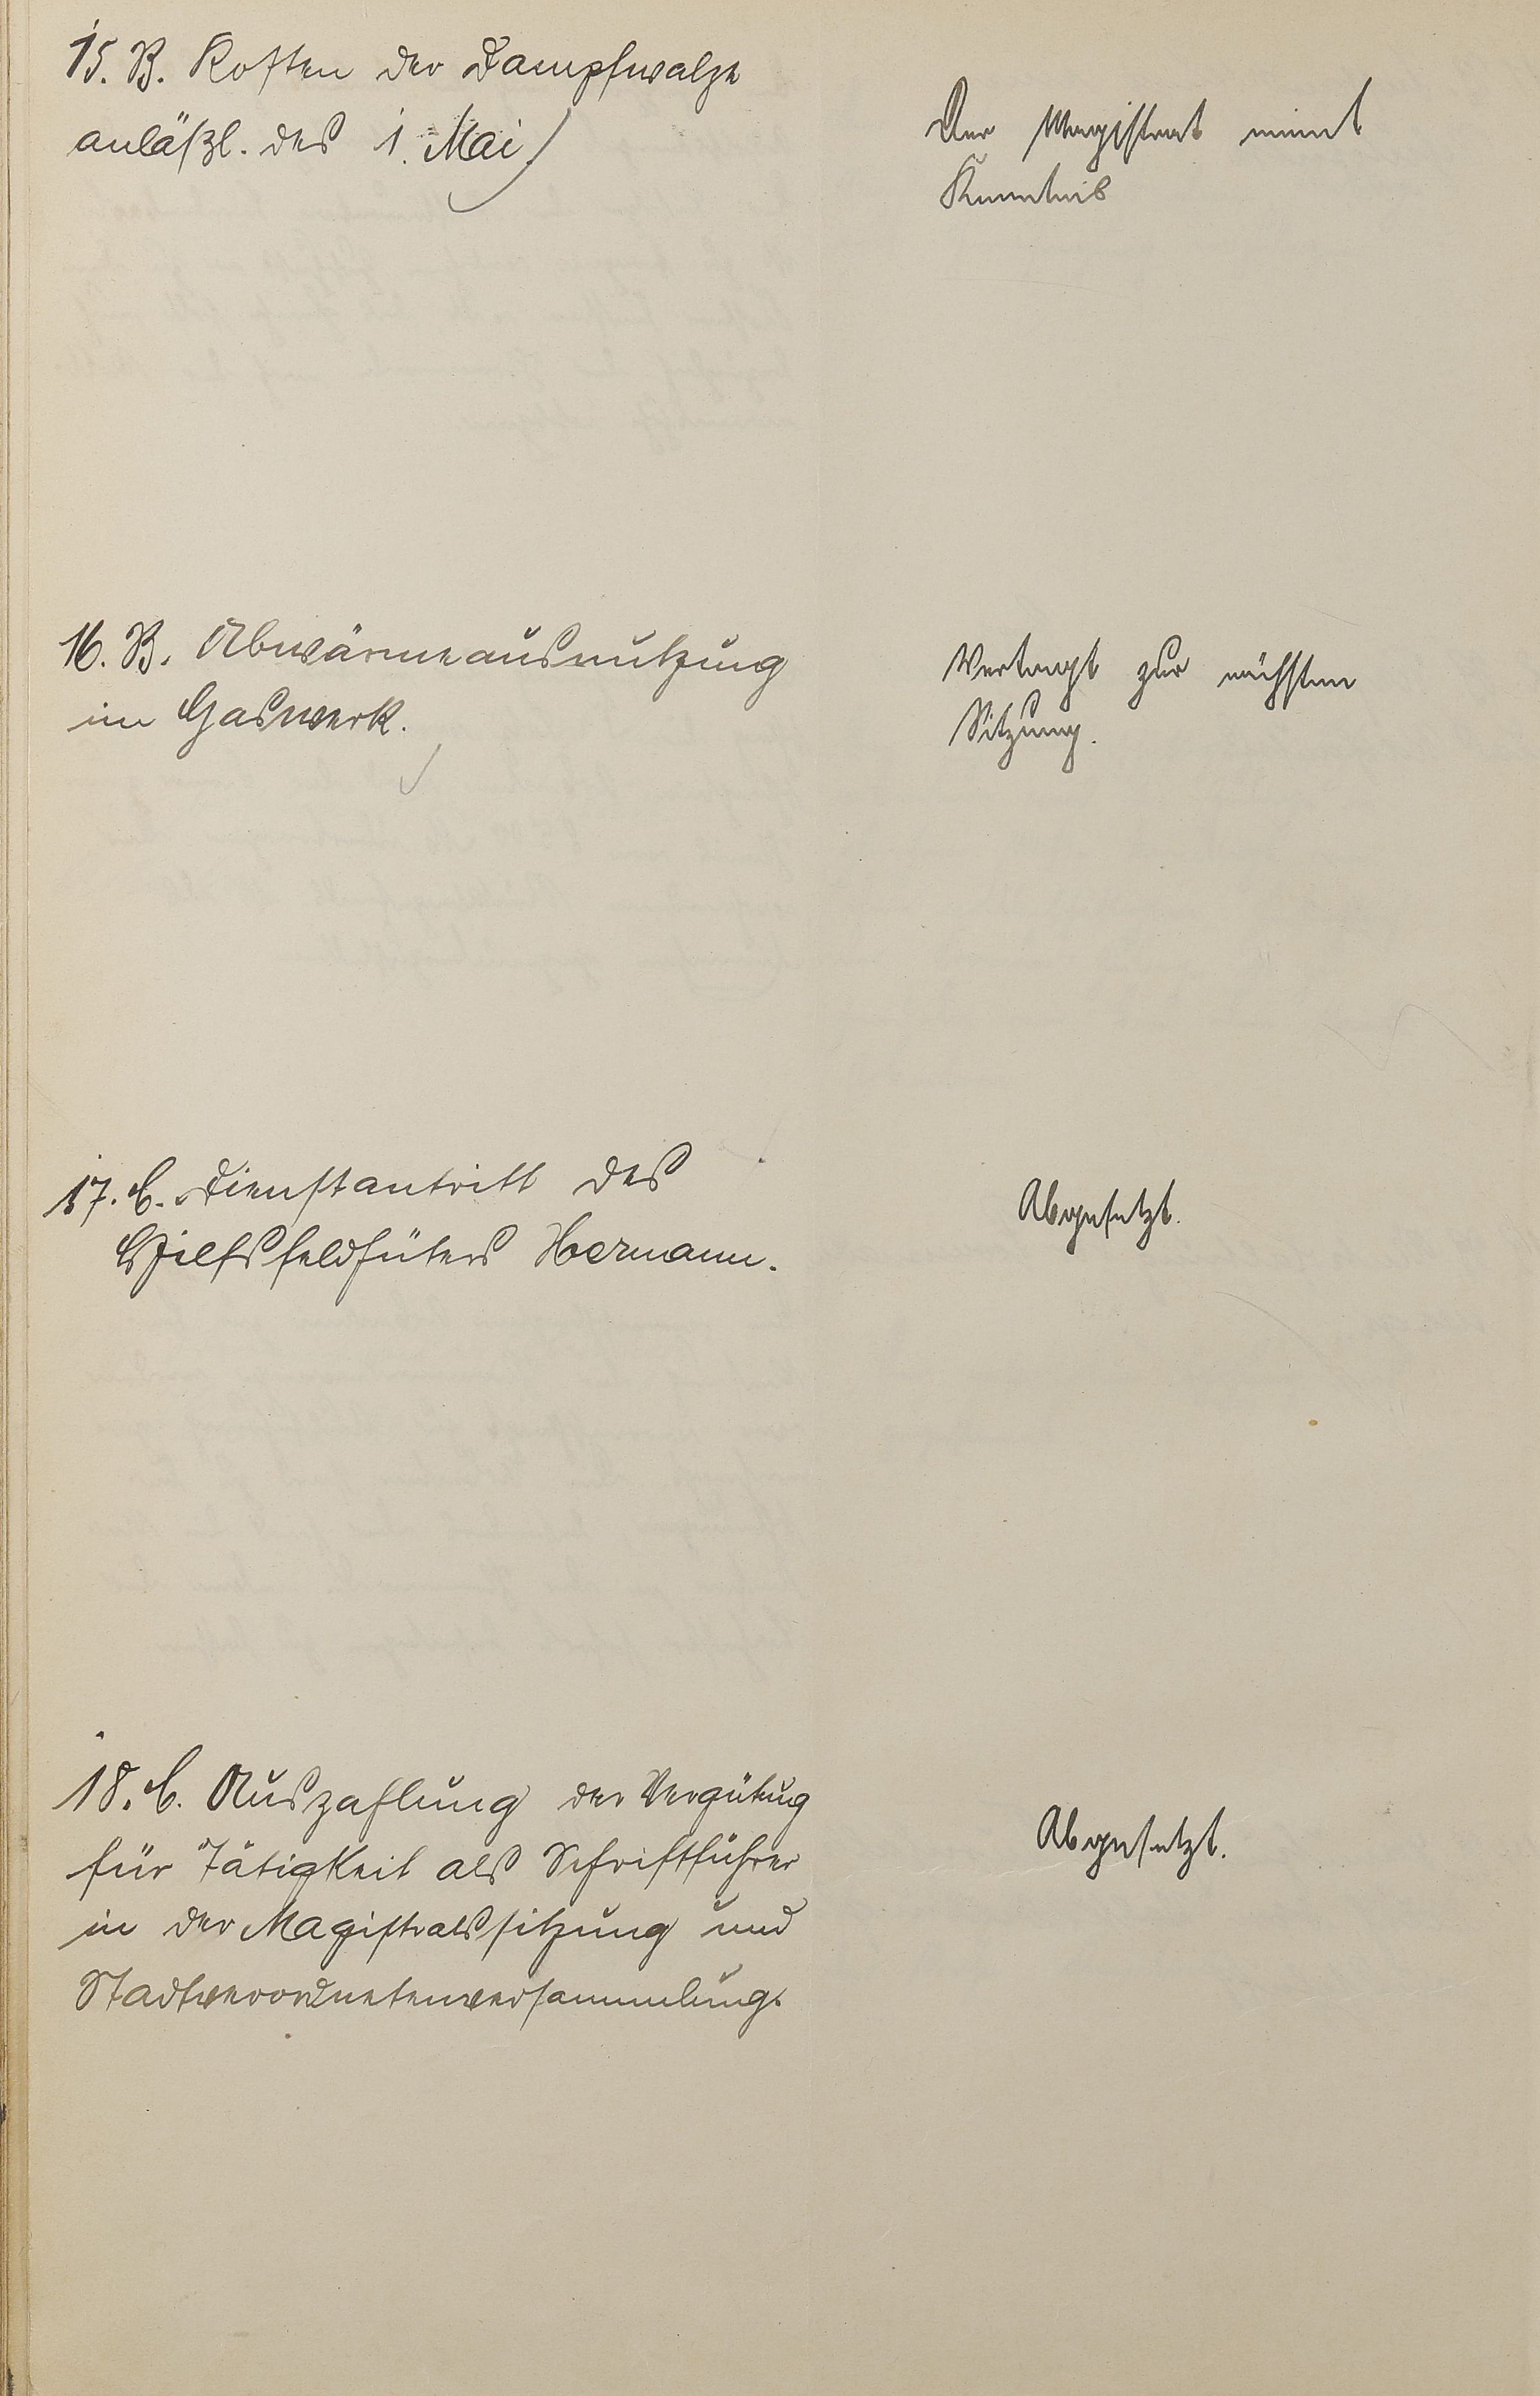 15. B. Kosten der Dampfwalze
anläßl. des 1. Mai
Der Magistrat nimmt
Kenntnis
16. B. Abwärmeausnutzung
im Gaswerk.
Vertagt zur nächsten
Sitzung.
17. C. Dienstantritt des
Hilfsfeldhüters Hermann.
Abgesetzt.
18. C. Auszahlung der Vergütung
für Tätigkeit als Schriftführer
in der Magistratssitzung und
Stadtverordnetenversammlung.
Abgesetzt.